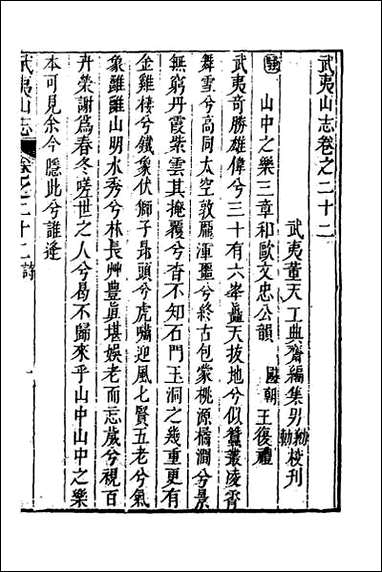 武夷山志卷之二十二
武夷董天工典齋編集男
校刊
詩
山中之樂三章和歐文忠公韻
國朝 王復禮
武夷奇勝雄偉兮三十有六峯矗天拔地兮似鷟叢凌霄
舞雪兮高同太空敦龐渾噩兮終古包蒙桃源橘澗兮景
無窮丹霞紫雲其掩覆兮杳不知石門玉洞之幾重更有
金雞棲兮鐵象伏獅子昂頭兮虎嘯迎風七賢五老兮氣
象雝雝山明水秀兮林長艸豐真堪娛老而忘歲兮視百
卉榮謝爲春冬嗟世之人兮曷不歸來乎山中山中之樂
本可見余今隱此兮誰逢
武夷山志
卷之二十二 詩
一